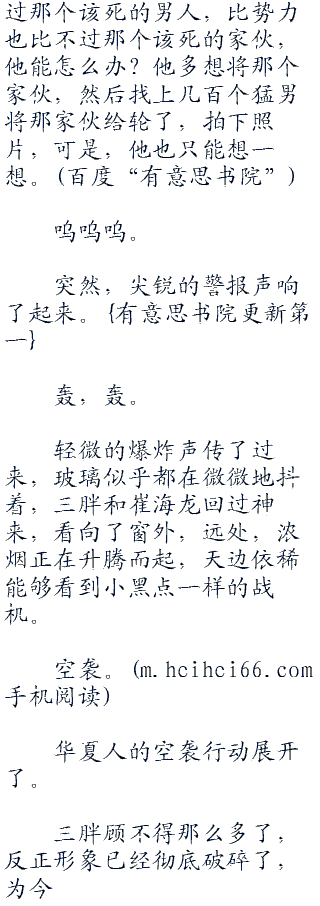 过那个该死的男人，比势力
也比不过那个该死的家伙，
他能怎么办？他多想将那个
家伙，然后找上几百个猛男
将那家伙给轮了，拍下照
片，可是，他也只能想一
想。(百度“有意思书院”)
呜呜呜。
突然，尖锐的警报声响
了起来。{有意思书院更新第
一}
轰，轰。
轻微的爆炸声传了过
来，玻璃似乎都在微微地抖
着，三胖和崔海龙回过神
来，看向了窗外，远处，浓
烟正在升腾而起，天边依稀
能够看到小黑点一样的战
机。
空袭。(m.hcihci66.com
手机阅读)
华夏人的空袭行动展开
了。
三胖顾不得那么多了，
反正形象已经彻底破碎了，
为今